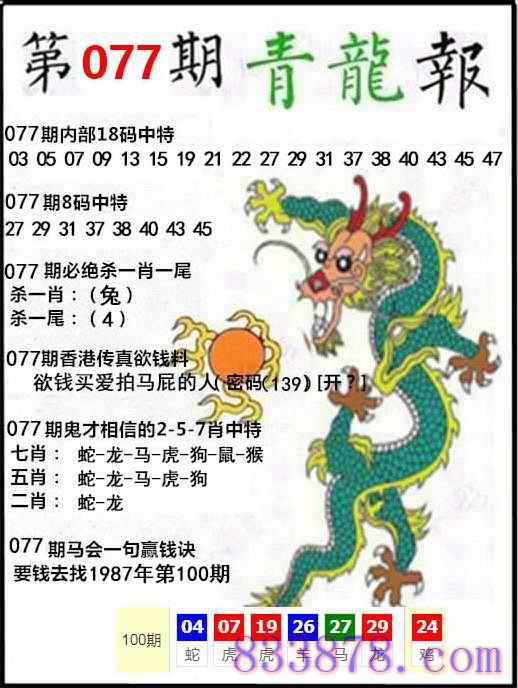 第077期 青龍報
077期内部18码中特
03 05 07 09 13 15 19 21 22 27 29 31 37 38 40 43 45 47
077期8码中特
27 29 31 37 38 40 43 45
077期必绝杀一肖一尾
杀一肖：（兔）
杀一尾：（4）
077期香港传真欲钱料
欲钱买爱拍马屁的人(密码(139) [开？]
077期鬼才相信的2-5-7肖中特
七肖： 蛇-龙-马-虎-狗-鼠-猴
五肖： 蛇-龙-马-虎-狗
二肖： 蛇-龙
077期马会一句赢钱诀
要钱去找1987年第100期
100期 04 07 19 26 27 29 24
蛇 虎 虎 羊 马 龙 鸡
833878.com